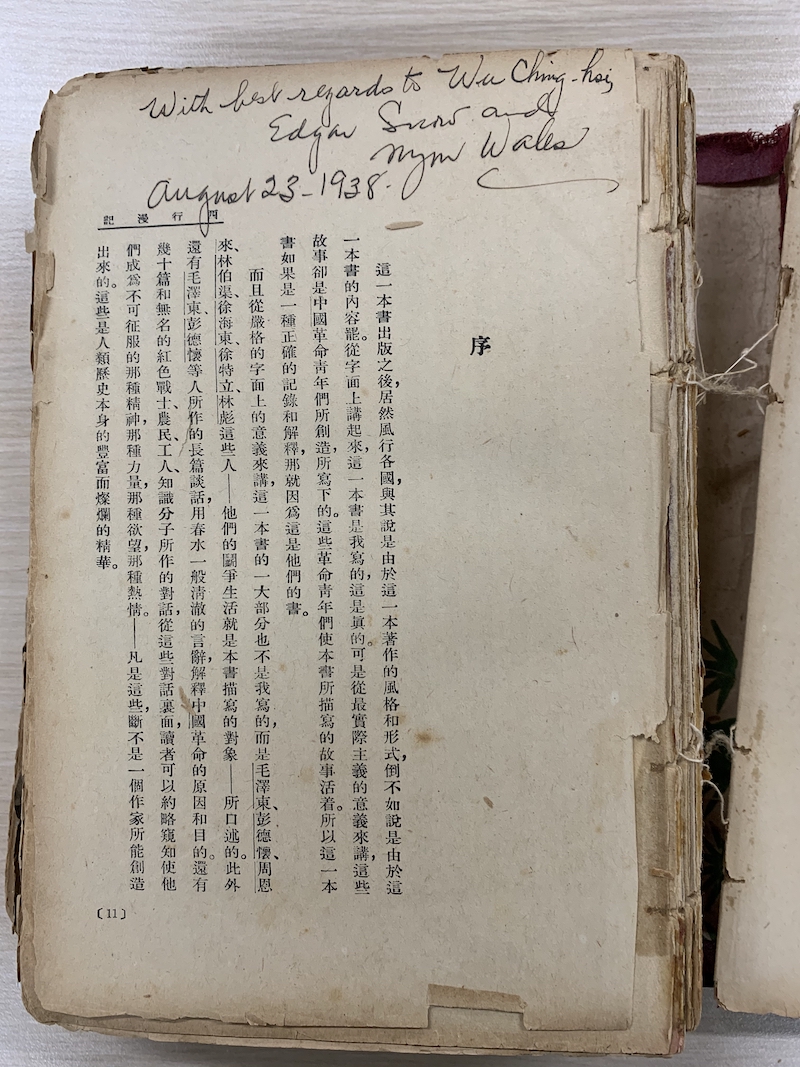 With best regards to Wu Ching-hsi
Edgar Snow and
Nym Wales
August 23 - 1938.
西行漫記
序
這一本書出版之後,居然風行各國,與其說是由於這一本著作的風格和形式,倒不如說是由於這
一本書的內容罷。從字面上講起來,這一本書是我寫的,這是眞的。可是從最實際主義的意義來講,這些
故事卻是中國革命靑年們所創造,所寫下的。這些革命靑年們使本書所描寫的故事活着。所以這一本
書如果是一種正確的記錄和解釋,那就因爲這是他們的書。
而且從嚴格的字面上的意義來講,這一本書的一大部分也不是我寫的,而是毛澤東、彭德懷、周恩
來、林伯渠、徐海東、徐特立、林彪這些人——他們的鬭爭生活就是本書描寫的對象——所口述的。此外
還有毛澤東、彭德懷等人所作的長篇談話,用春水一般淸澈的言辭,解釋中國革命的原因和目的。還有
幾十篇和無名的紅色戰士、農民、工人、知識分子所作的對話,從這些對話裏面,讀者可以約略窺知使他
們成爲不可征服的那種精神,那種力量,那種欲望,那種熱情。——凡是這些,斷不是一個作家所能創造
出來的。這些是人類歷史本身的豐富而燦爛的精華。
〔11〕